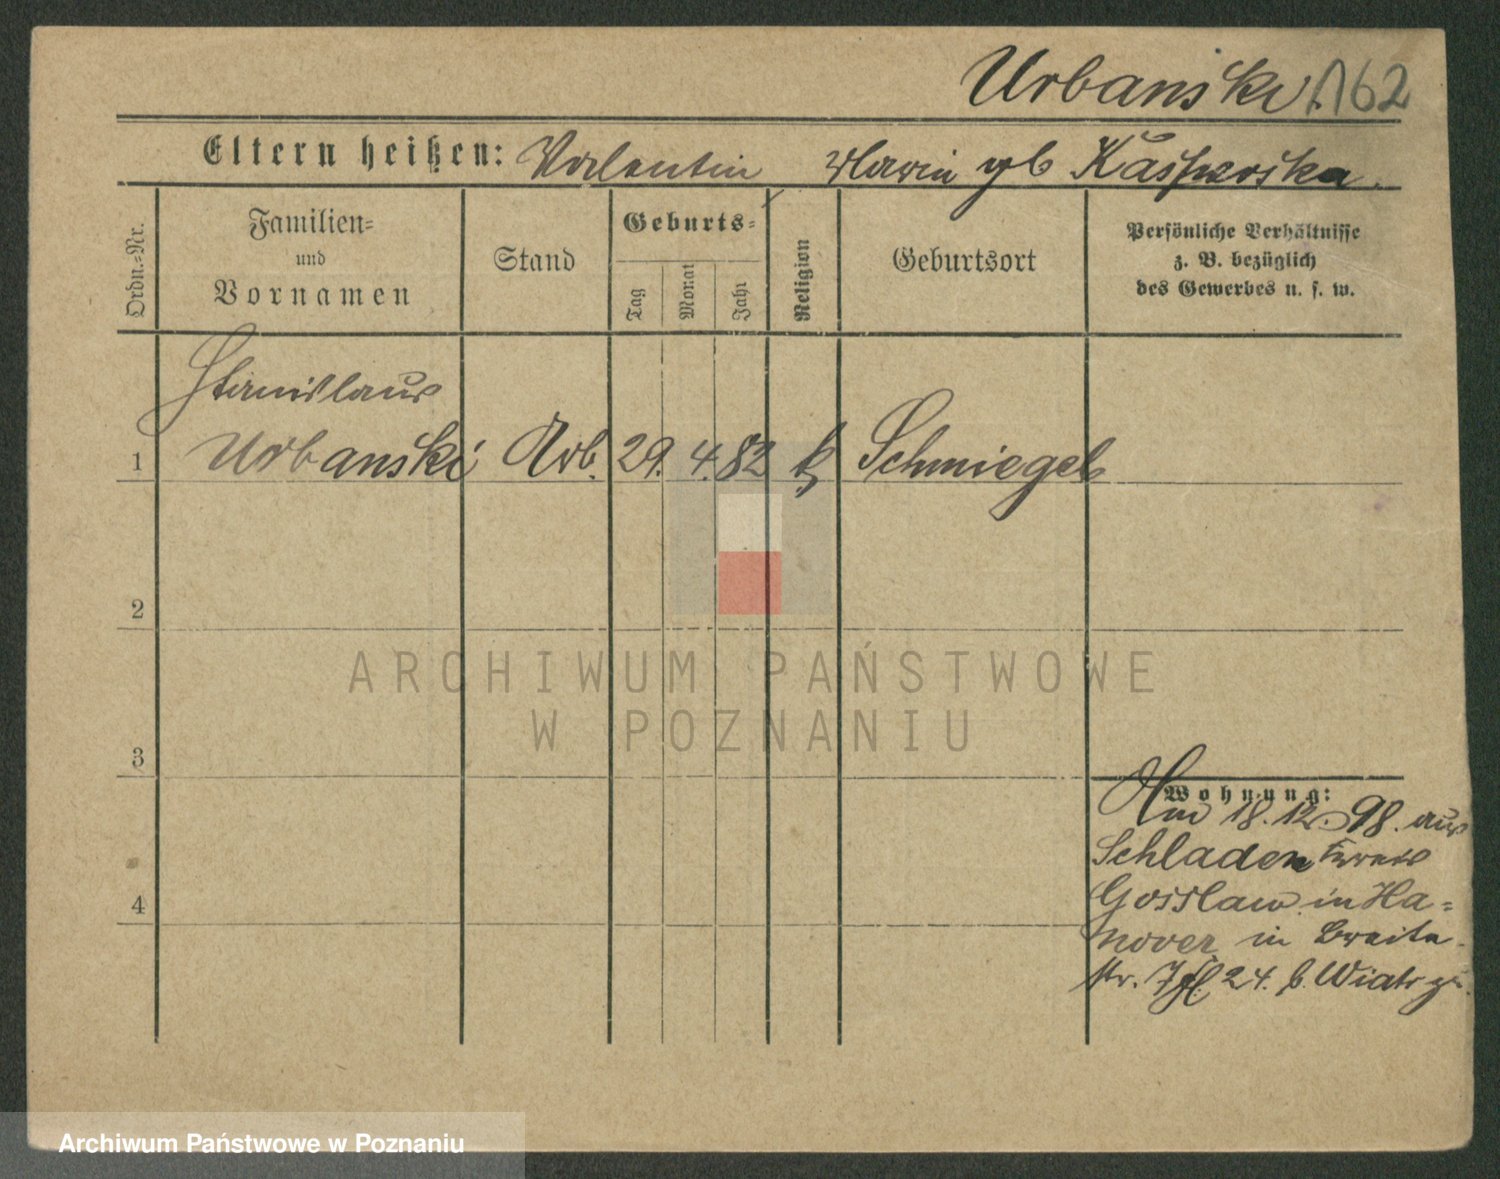 Urbanski. 162
Eltern heißen: Valentin Maria gb Kasperska.
Ordn.=Nr.
Familien=
und
Vornamen
Stand
Geburts=
Tag
Monat
Jahr
Religion
Geburtsort
Persönliche Verhältnisse
z. B. bezüglich
des Gewerbes u. s. w.
Stanislaus
1 Urbanski Arb. 29. 4. 82 k Schmiegel
2
ARCHIWUM PAŃSTWOWE
W POZNANIU
3
Wohnung:
Am 18.12.98. aus
Schladen Kreis
Gosslar in Ha=
nover in Breite
str. 24. b. Wiatr
4
Archiwum Państwowe w Poznaniu